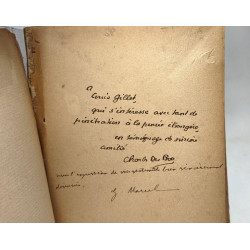 à
Louis Gillet,
qui s'intéresse avec tant de
pénétration à la pensée étrangère
en témoignage de sincère
amitié
Charles Du Bos
avec l'expression de
dévoués
G Marcel